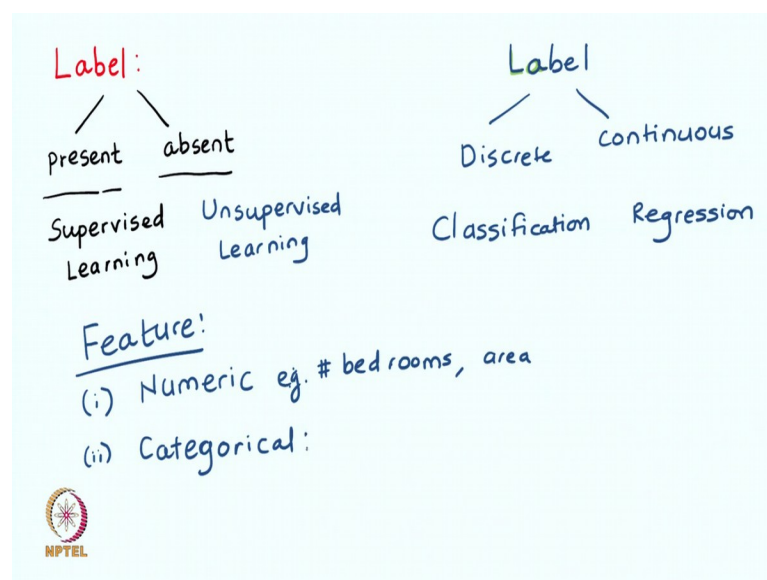 Label:
present absent
Supervised Learning
Unsupervised Learning
Label
Discrete continuous
Classification Regression
Feature:
(i) Numeric eg. # bedrooms, area
(ii) Categorical:
NPTEL